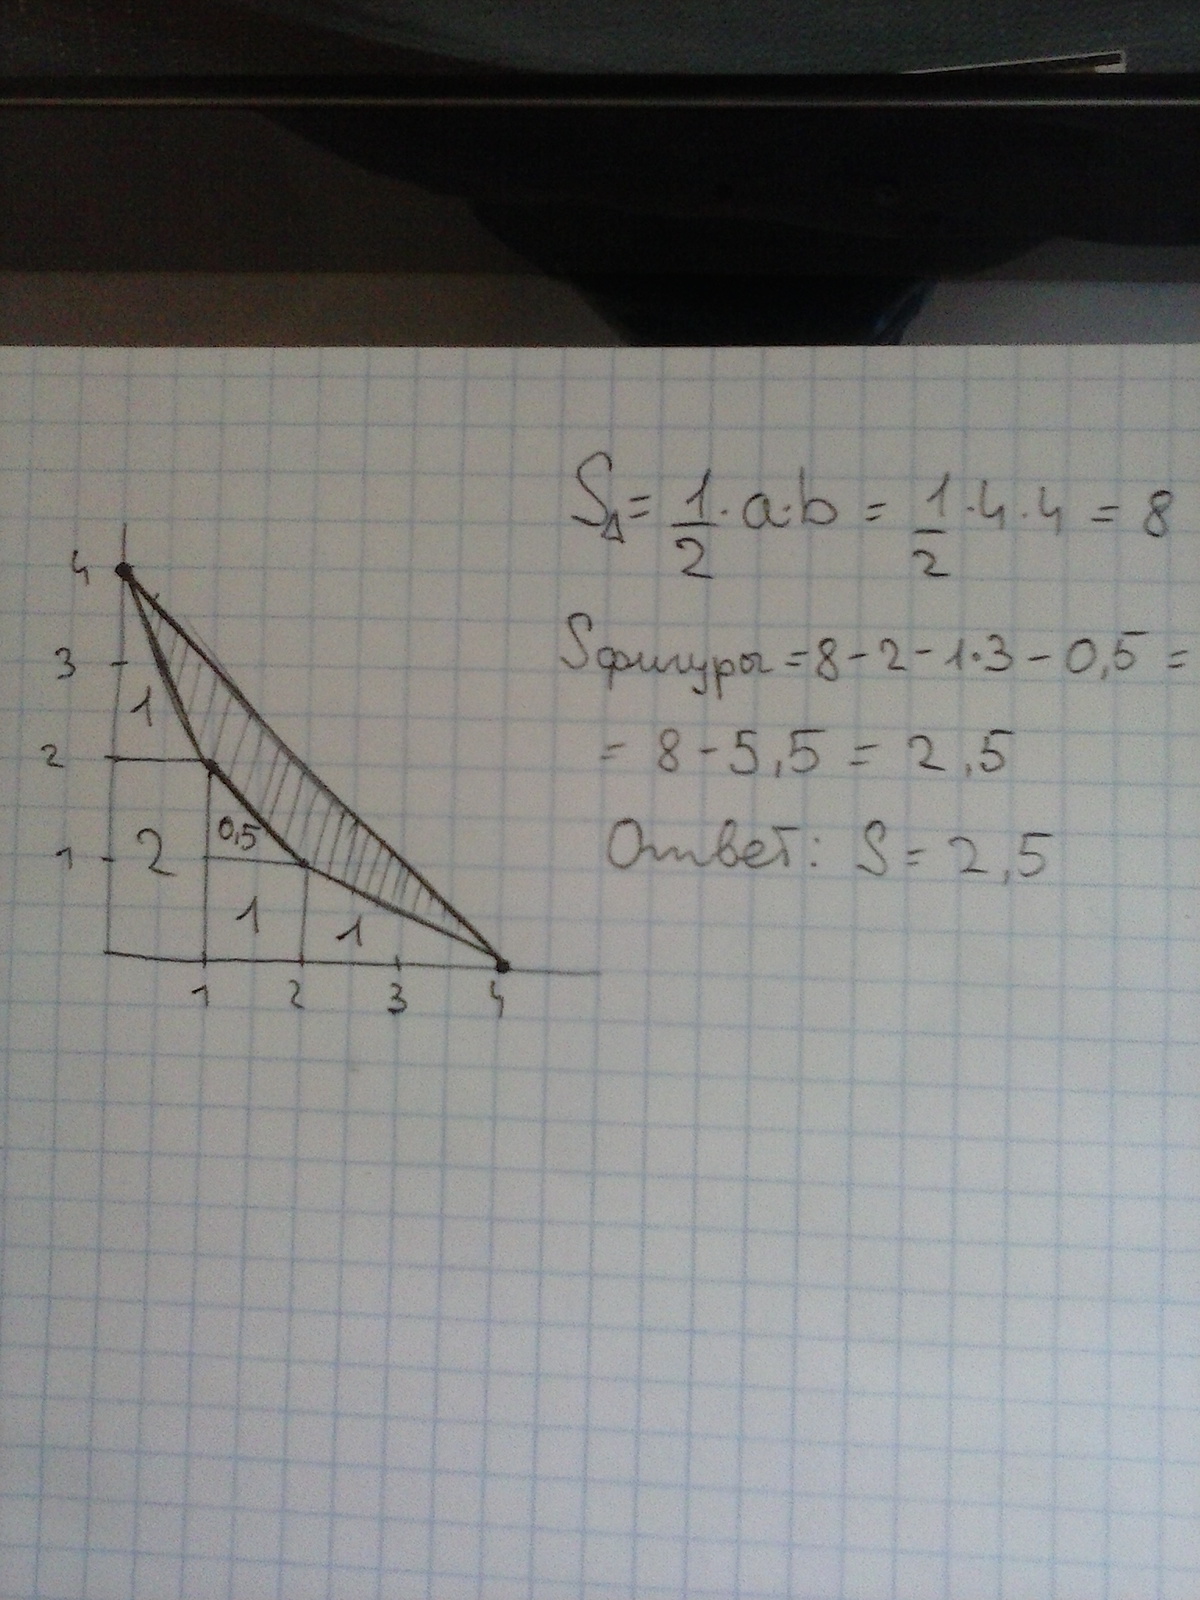 S△ = 1/2 · a · b = 1/2 · 4 · 4 = 8
Sфигуры = 8 - 2 - 1·3 - 0,5 =
= 8 - 5,5 = 2,5
Ответ: S = 2,5
4
3
1
2
0,5
1
2
1
1
1 2 3 4